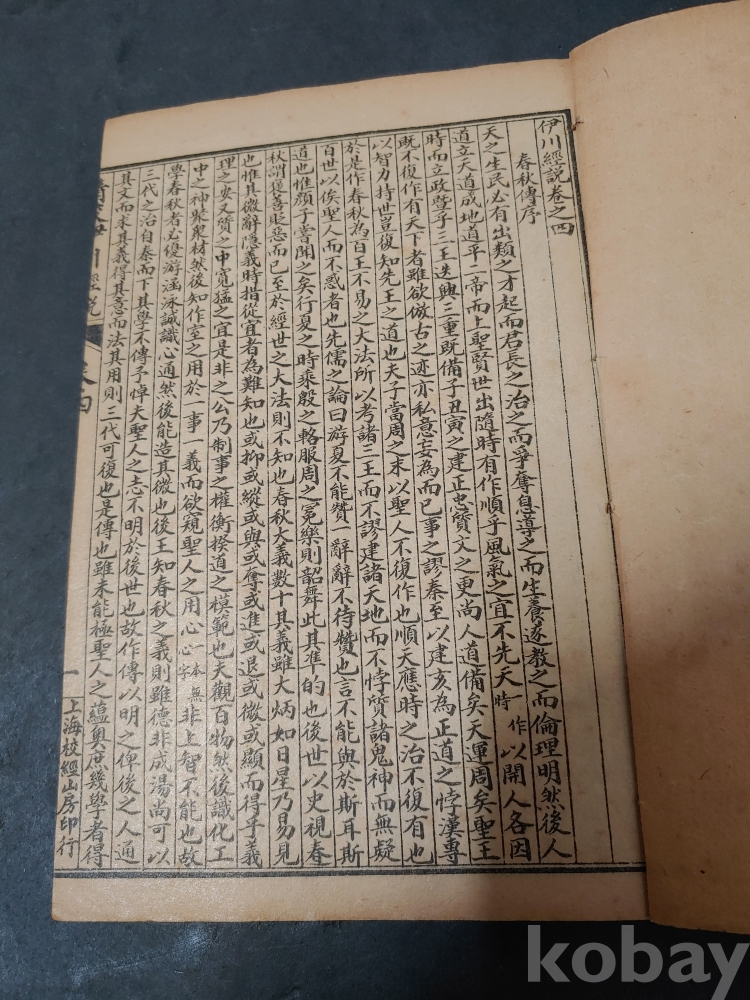 伊川經說卷之四
春秋傳序
天之生民必有出類之才起而君長之治之而爭奪息導之而生養遂教之而倫理明然後人
道立天道成地道平二帝而上聖賢世出隨時有作順乎風氣之宜不先天一作時以開人各因
時而立政暨乎三王迭興三重既備子丑寅之建正忠質文之更尚人道備矣天運周矣聖王
既不復作有天下者雖欲倣古之迹亦私意妄為而已事之謬秦至以建亥為正道之悖漢專
以智力持世豈復知先王之道也夫子當周之末以聖人不復作也順天應時之治不復有也
於是作春秋為百王不易之大法所以考諸三王而不謬建諸天地而不悖質諸鬼神而無疑
百世以俟聖人而不惑者也先儒之論曰游夏不能贊一辭辭不待贊也言不能與於斯耳斯
道也惟顏子嘗聞之矣行夏之時乘殷之輅服周之冕樂則韶舞此其準的也後世以史視春
秋謂褒善貶惡而已至於經世之大法則不知也春秋大義數十其義雖大炳如日星乃易見
也惟其微辭隱義時措從宜者為難知也或抑或縱或與或奪或進或退或微或顯而得乎義
理之安文質之中寬猛之宜是非之公乃制事之權衡揆道之模範也夫觀百物然後識化工
之神聚眾材然後知作室之用於一事一義而欲窺聖人之用心一本無心字非上智不能也故
學春秋者必優游涵泳誠識心通然後能造其微也後王知春秋之義則雖德非成湯尚可以
三代之治自秦而下其學不傳予悼夫聖人之志不明於後世也故作傳以明之俾後之人通
其文而求其義得其意而法其用則三代可復也是傳也雖未能極聖人之蘊奧庶幾學者得
伊川經說
卷四
一
上海校經山房印行
kobay